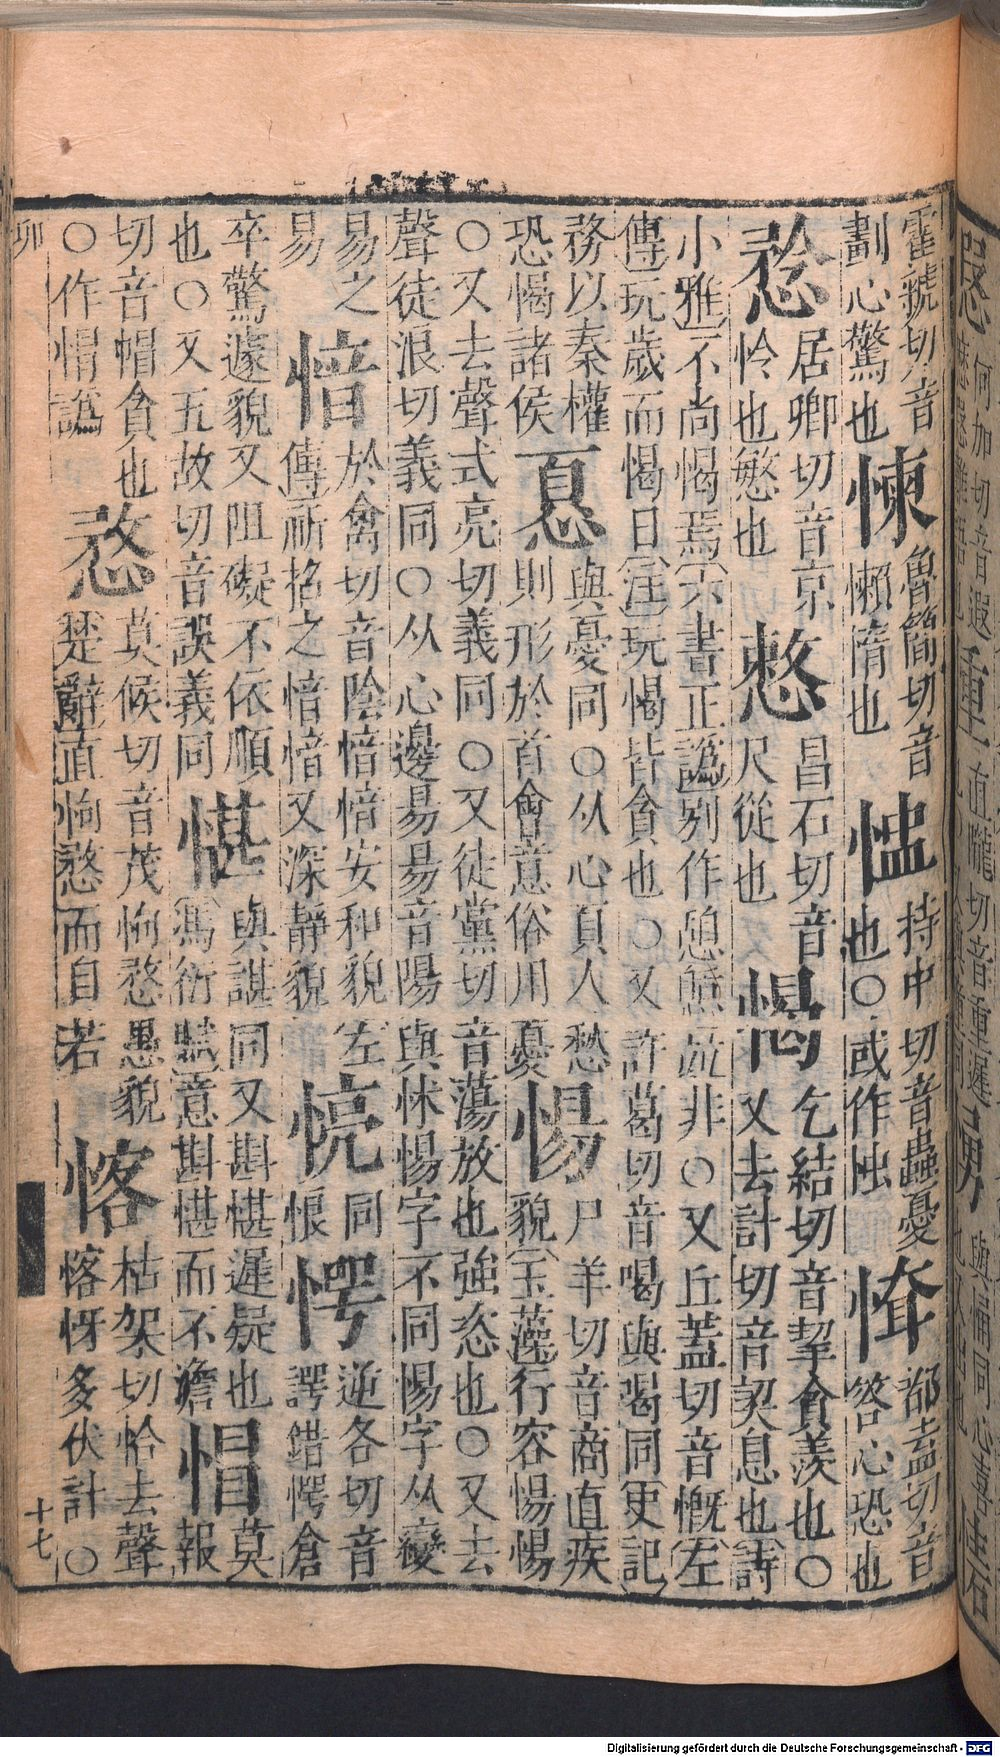 霍虢切音
劃心驚也
魯簡切音
懶惰也
持中切音蟲憂
也○或作忡
都盍切音
答心恐也
居卿切音京
怜也慜也
憗
昌石切音
尺從也
愒
乞結切音挈貪羨也○
又去計切音契息也詩
小雅不尚愒焉六書正譌別作憩䭒㲼非○又丘蓋切音慨左
傳玩歲而愒日注玩愒皆貪也○又許葛切音喝與喝同史記
務以秦權
恐愒諸侯
𢝊
與憂同○从心頁人愁
則形於首會意俗用憂
惕
尸羊切音商直疾
貌玉藻行容惕惕
○又去聲式亮切義同○又徒黨切音蕩放也強恣也○又去
聲徒浪切義同○从心邊昜昜音陽與怵惕字不同惕字从變
易之
易
愔
於禽切音陰愔愔安和貌左
傳祈招之愔愔又深靜貌
㤺
同
悵
愕
逆各切音
諤錯愕倉
卒驚遽貌又阻礙不依順
也○又五故切音誤義同
愖
與諶同又斟愖遲疑也
馮衍賦意斟愖而不澹
㥌
莫
報
切音帽貪也
○作㥌譌
愗
莫候切音茂怐愗愚貌
楚辭直怐愗而自若
㤩
枯架切恰去聲
㤩㤉多伏計○
卯
十七
Digitalisierung gefördert durch die Deutsche Forschungsgemeinschaft - DFG